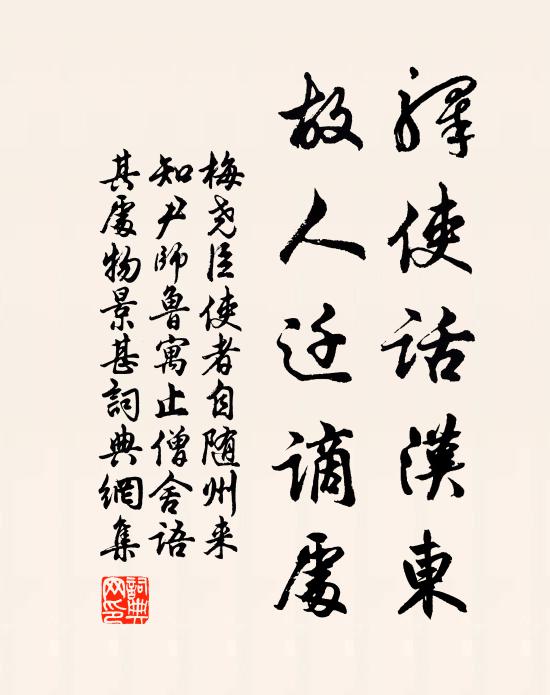 驛使話漢東
故人迁謫處
梅尧臣使者自随州来
知尹師魯寓止僧舍語
其處物景甚詞典網集
詞典网印